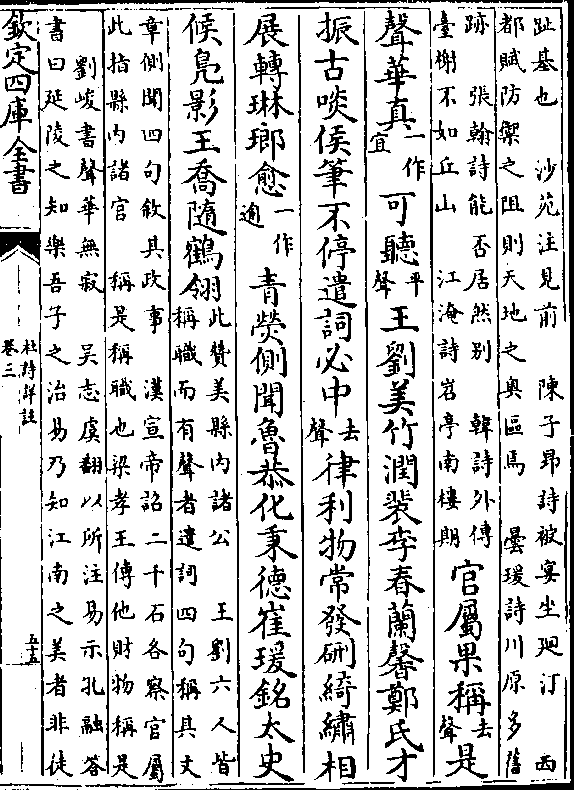 趾基也　沙苑注見前　陳子昂詩被宴坐廻汀　西
都賦防禦之阻則天地之奥區焉　曇瑗詩川原多舊
跡　張翰詩能否居然别　韓詩外傳
臺榭不如丘山　江淹詩岩亭南樓期
官屬果稱去聲是
聲華真一作宜可聽平聲王劉美竹潤裴李春蘭馨鄭氏才
振古啖侯筆不停遣詞必中去聲律利物常發硎綺繡相
展轉琳瑯愈一作逾青熒側聞魯恭化秉德崔瑗銘太史
候鳬影王喬隨鶴翎此贊美縣内諸公　王劉六人皆
稱職而有聲者遣詞四句稱其文
章側聞四句敘其政事　漢宣帝詔二千石各察官屬
此指縣内諸官　稱是稱職也梁孝王傳他財物稱是
　劉峻書聲華無寂　吴志虞翻以所注易示孔融答
書曰延陵之知樂吾子之治易乃知江南之美者非徒
欽定四庫全書
杜詩詳註
卷三
五十五